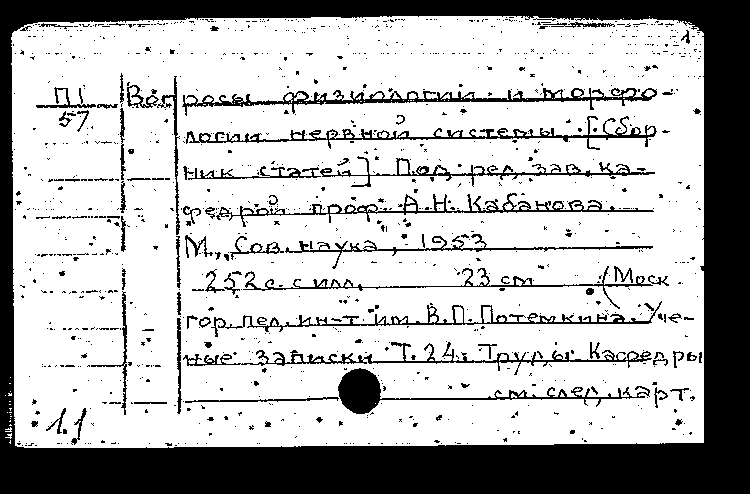 1
П1 Вопросы физиологии и морфо-
57 логии нервной системы. [Сбор-
ник статей] Под ред. зав. ка-
федрой проф. А.Н. Кабанова.
М., "Сов. наука", 1953
252 с. с илл. 23 см (Моск.
гор. пед. ин-т им. В.П. Потемкина. Уче-
ные записки Т. 24. Труды Кафедры
см. след. карт.
1.1